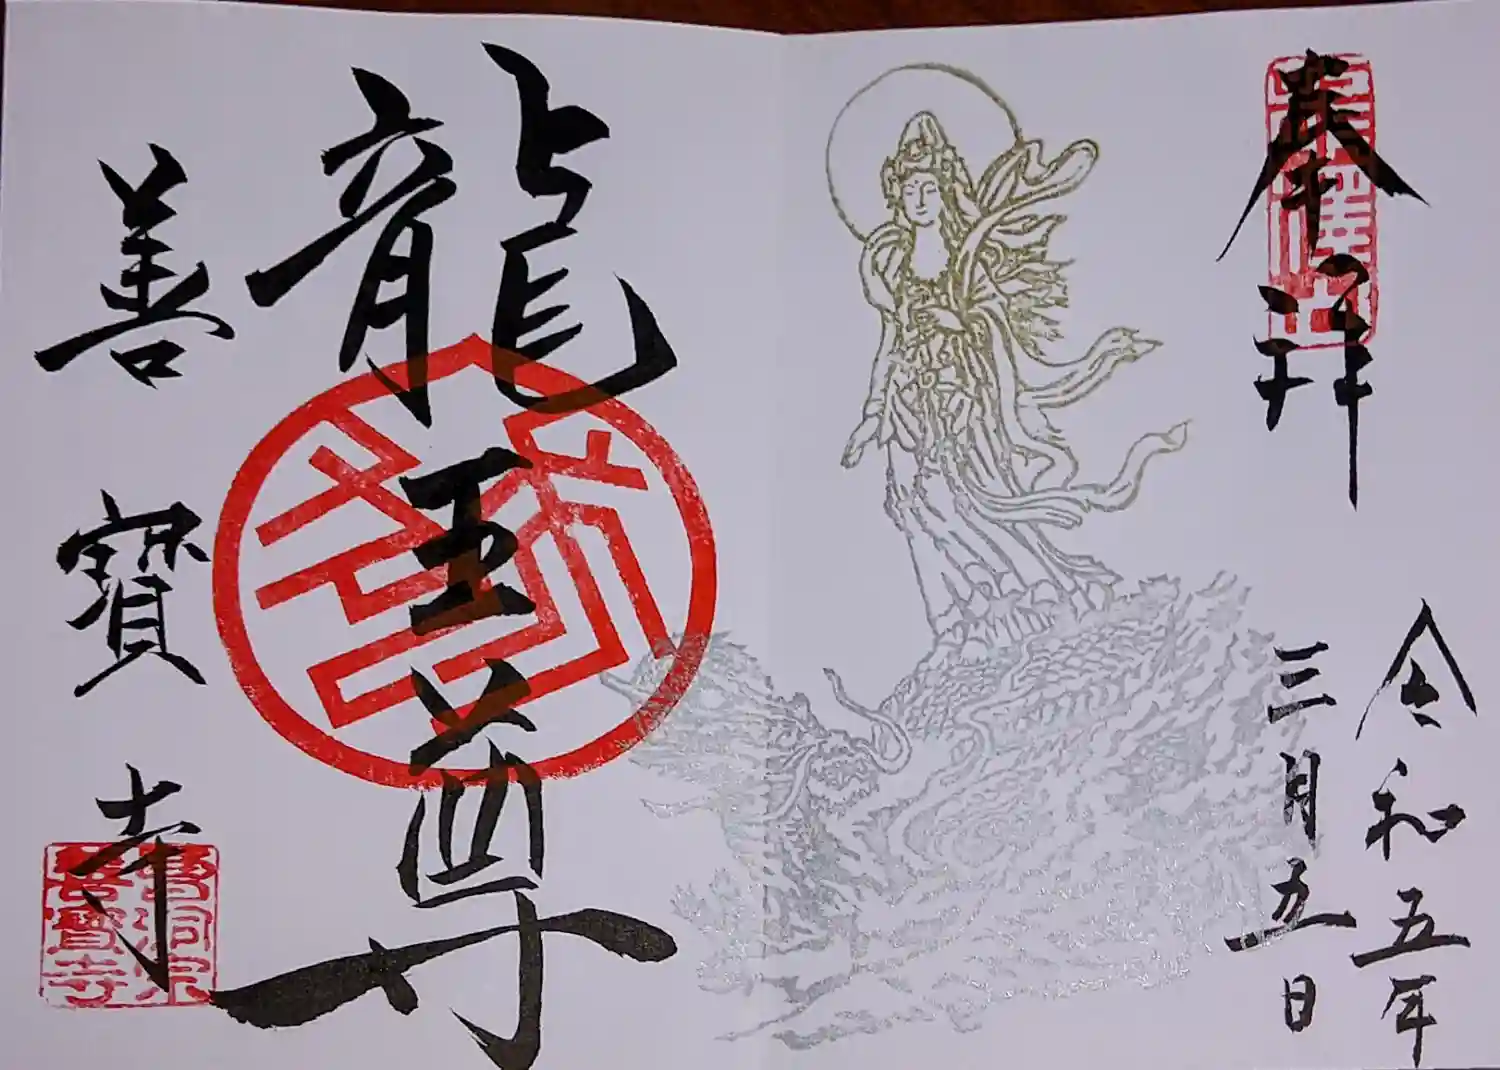 奉拝
令和五年
三月五日
龍王尊
善寳寺
曹洞宗
善寳寺